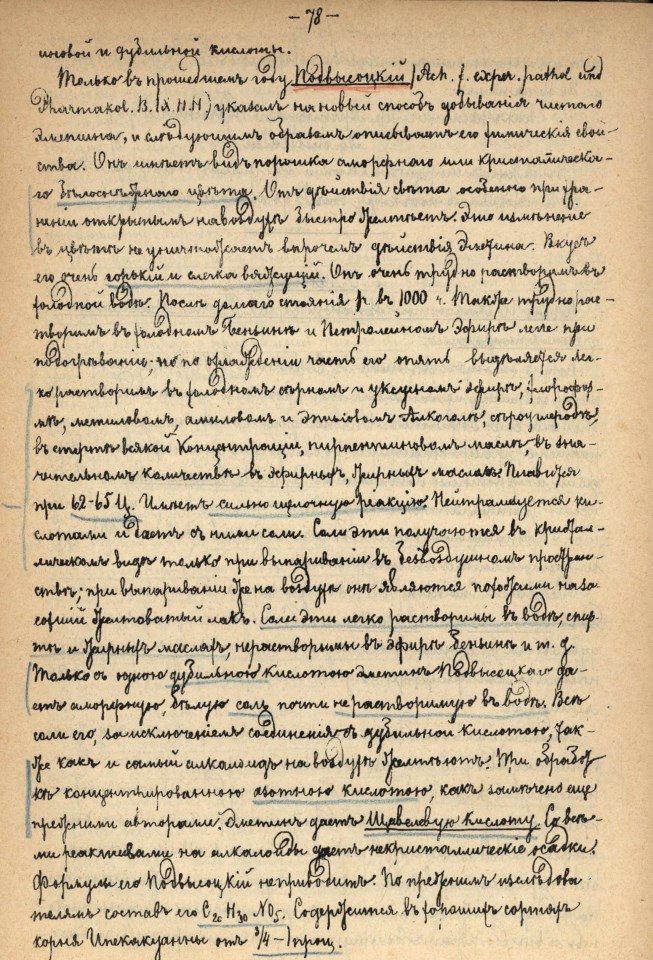 — 78 —
иновой и дубильной кислоты.
Только въ прошедшемъ году Подвысоцкій /Ach. f. exper. pathol und
Pharmakol. B. (X. H.H.) указалъ на новый способъ добыванія чистаго
Эметина, и слѣдующимъ образомъ описываетъ его химическія свой-
ства. Онъ имѣетъ видъ порошка аморфнаго или кристаллическа-
го бѣлоснѣжнаго цвѣта. Отъ дѣйствія свѣта особенно при хра-
неніи открытымъ на воздухѣ быстро желтѣетъ. Это измѣненіе
въ цвѣтѣ не уничтожаетъ впрочемъ дѣйствія Эметина. Вкусъ
его очень горькій и слегка вяжущій. Онъ очень трудно растворимъ въ
холодной водѣ. Послѣ долгаго стоянія 1 въ 1000 ч. Также трудно рас-
творимъ въ холодномъ Бензинѣ и Петролейномъ Эфирѣ легче при
подогрѣваніи; но по охлажденіи часть его опять выдѣляется лег-
ко растворимъ въ холодномъ сѣрномъ и уксусномъ эфирѣ, хлорофор-
мѣ, метиловомъ, амиловомъ и этиловомъ Алкоголѣ, сѣроуглеродѣ,
въ спиртѣ всякой Концентраціи, терпентиновомъ маслѣ, въ зна-
чительномъ количествѣ въ эфирныхъ, жирныхъ маслахъ. Плавится
при 62-65 Ц. Имѣетъ сильно щелочную реакцію. Нейтрализуется ки-
слотами и даетъ съ ними соли. Соли эти получаются въ кристал-
лическомъ видѣ только при выпариваніи въ безвоздушномъ простран-
ствѣ; при выпариваніи же на воздухѣ онѣ являются похожими на за-
сохшій желтоватый лакъ. Соли эти легко растворимы въ водѣ, спир-
тѣ и жирныхъ маслахъ, нерастворимы въ эфирѣ бензинѣ и т. д.
Только съ одною дубильною кислотою эметинъ Подвысоцкаго да-
етъ аморфную, бѣлую соль почти не растворимую въ водѣ. Всѣ
соли его, за исключеніемъ соединенія съ дубильной кислотою, так-
же какъ и самый алкалоидъ на воздухѣ желтѣютъ. При обработ-
кѣ концентрированною азотною кислотою, какъ замѣчено еще
прежними авторами. Эметинъ даетъ Щавелевую кислоту. Со всѣ-
ми реактивами на алкалоиды даетъ некристаллическіе осадки.
Формулы его Подвысоцкій не приводитъ. По прежнимъ изслѣдова-
телямъ составъ его C20 H30 NO5. Содержится въ хорошихъ сортахъ
корня Ипекакуанны отъ 3/4 – 1 проц.